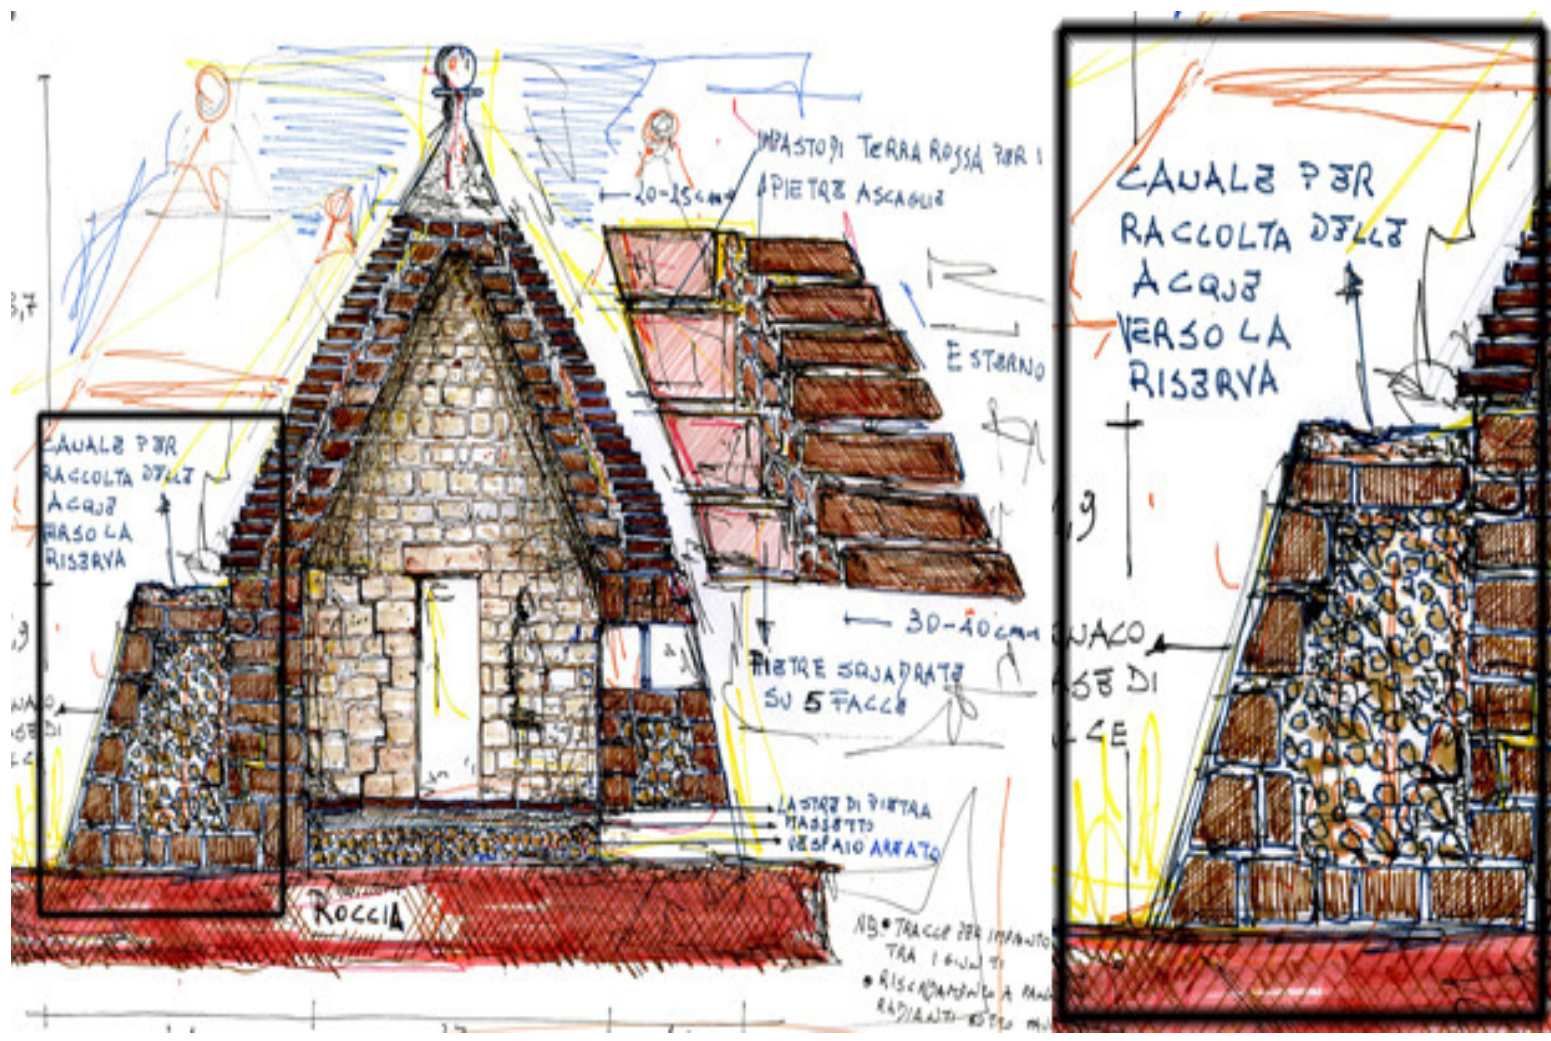 IMPASTO DI TERRA ROSSA PER I
20-25cm
A PIETRE A SCAGLIE
3,7
ESTERNO
CANALE PER
RACCOLTA DELLE
ACQUE
VERSO LA
RISERVA
,9
30-40 cm
PIETRE SQUADRATE
SU 5 FACCE
LASTRE DI PIETRA
MASSETTO
VESPAIO AREATO
ROCCIA
NB • TRACCE PER IMPIANTO
TRA I GIUNTI
• RISCALDAMENTO A
RADIANTI SOTTO
CANALE PER
RACCOLTA DELLE
ACQUE
VERSO LA
RISERVA
,9
NACO
SE DI
LCE